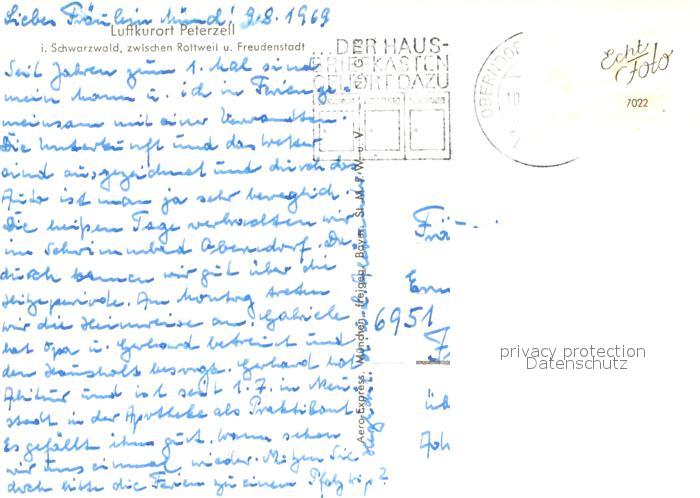 Liebes Fräulein Münd! 9.8.1969
Luftkurort Peterzell
i. Schwarzwald, zwischen Rottweil u. Freudenstadt
Seit Jahren zum 1. Mal sind
mein Mann u. ich in Ferien ge-
meinsam mit einer Verwandten.
Die Unterkunft und das Wetter
sind ausgezeichnet und durch das
Auto ist man ja sehr beweglich.
Die heißen Tage verbrachten wir
im Schwimmbad Oberndorf. Da-
durch kamen wir gut über die
Hitzeperiode. Am Montag treten
wir die Heimreise an. Gabriele
hat Opa u. Gerhard betreut und
den Haushalt besorgt. Gerhard hat
Abitur und ist seit 1.7. in Neu-
stadt in der Apotheke als Praktikant.
Es gefällt ihm gut. Wann sehen
wir uns einmal wieder. Mögen Sie
doch bitte die Ferien zu einem Pfalztrip?
...DER HAUS-
BRIEFKASTEN
GEHÖRT DAZU
OBERNDORF
10
Echt
Foto
7022
Aero-Express, München, freigeg. Bayer. St. M. f. W. u. V.
6951
privacy protection
Datenschutz